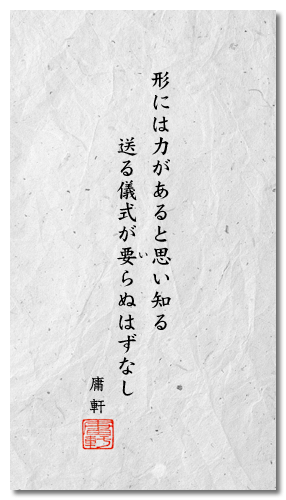 形には力があると思い知る
送る儀式が要らぬはずなし
い
庸軒
庸軒